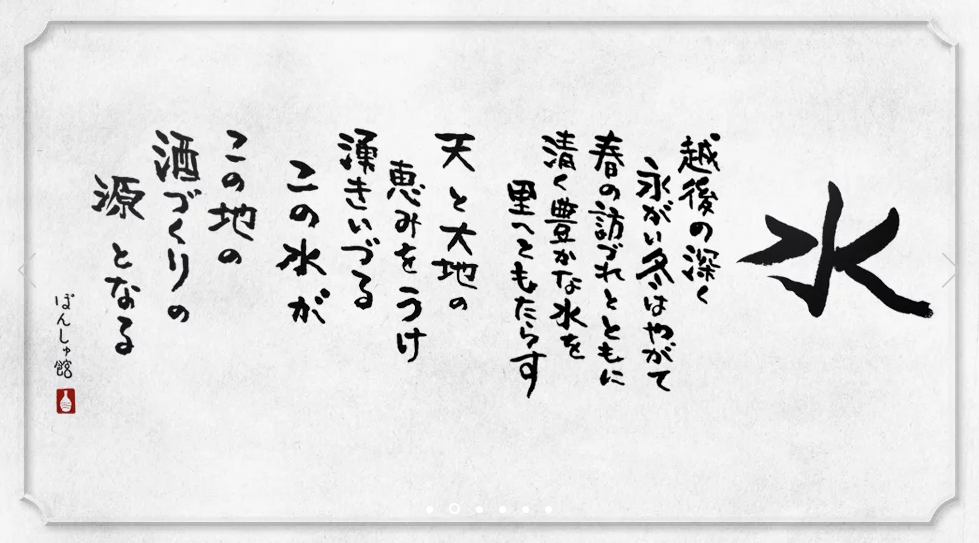 水
越後の深く
永がい冬はやがて
春の訪づれとともに
清く豊かな水を
里へともたらす
天と大地の
恵みをうけ
湧きいづる
この水が
この地の
酒づくりの
源となる
ぽんしゅ館